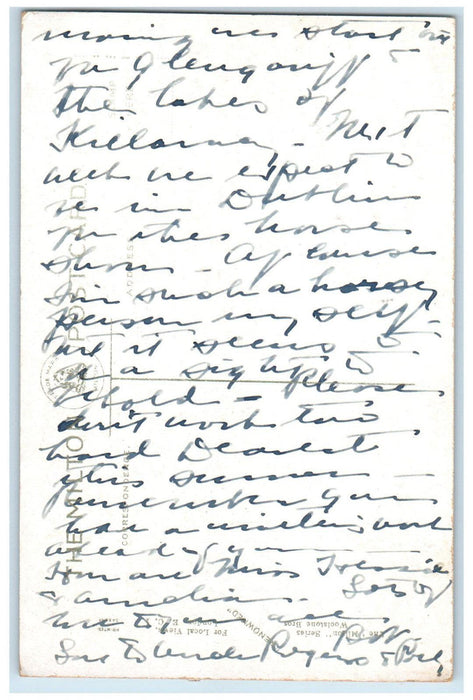 morning we start on
for Glengariff &
the lakes of
Killarney - Next
week we expect to
be in Dublin
for the horse
show - Of course
I'm such a horsey
person my self -
but it seems to
be a sight to
behold - Please
don't work too
hard Dearest
this summer -
remember you
have a winter's work
ahead of you
How are Miss
& Amelia - Lots of
love to you all
Love to Uncle Rogers &
THE MILTON POST CARD
ADDRESS
CORRESPONDENCE
The "Milton" Series
Woolstone Bros.
For Local View
London E.C.